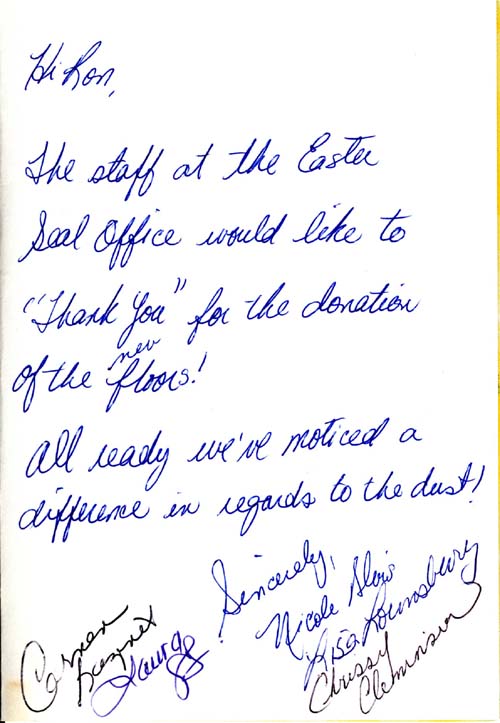 Hi Ron,
The staff at the Easter
Seal Office would like to
"Thank You" for the donation
of the new floors!
All ready we've noticed a
difference in regards to the dust!
Sincerely,
Nicole
Lisa Lounsbury
Chrissy
Carman
Laura